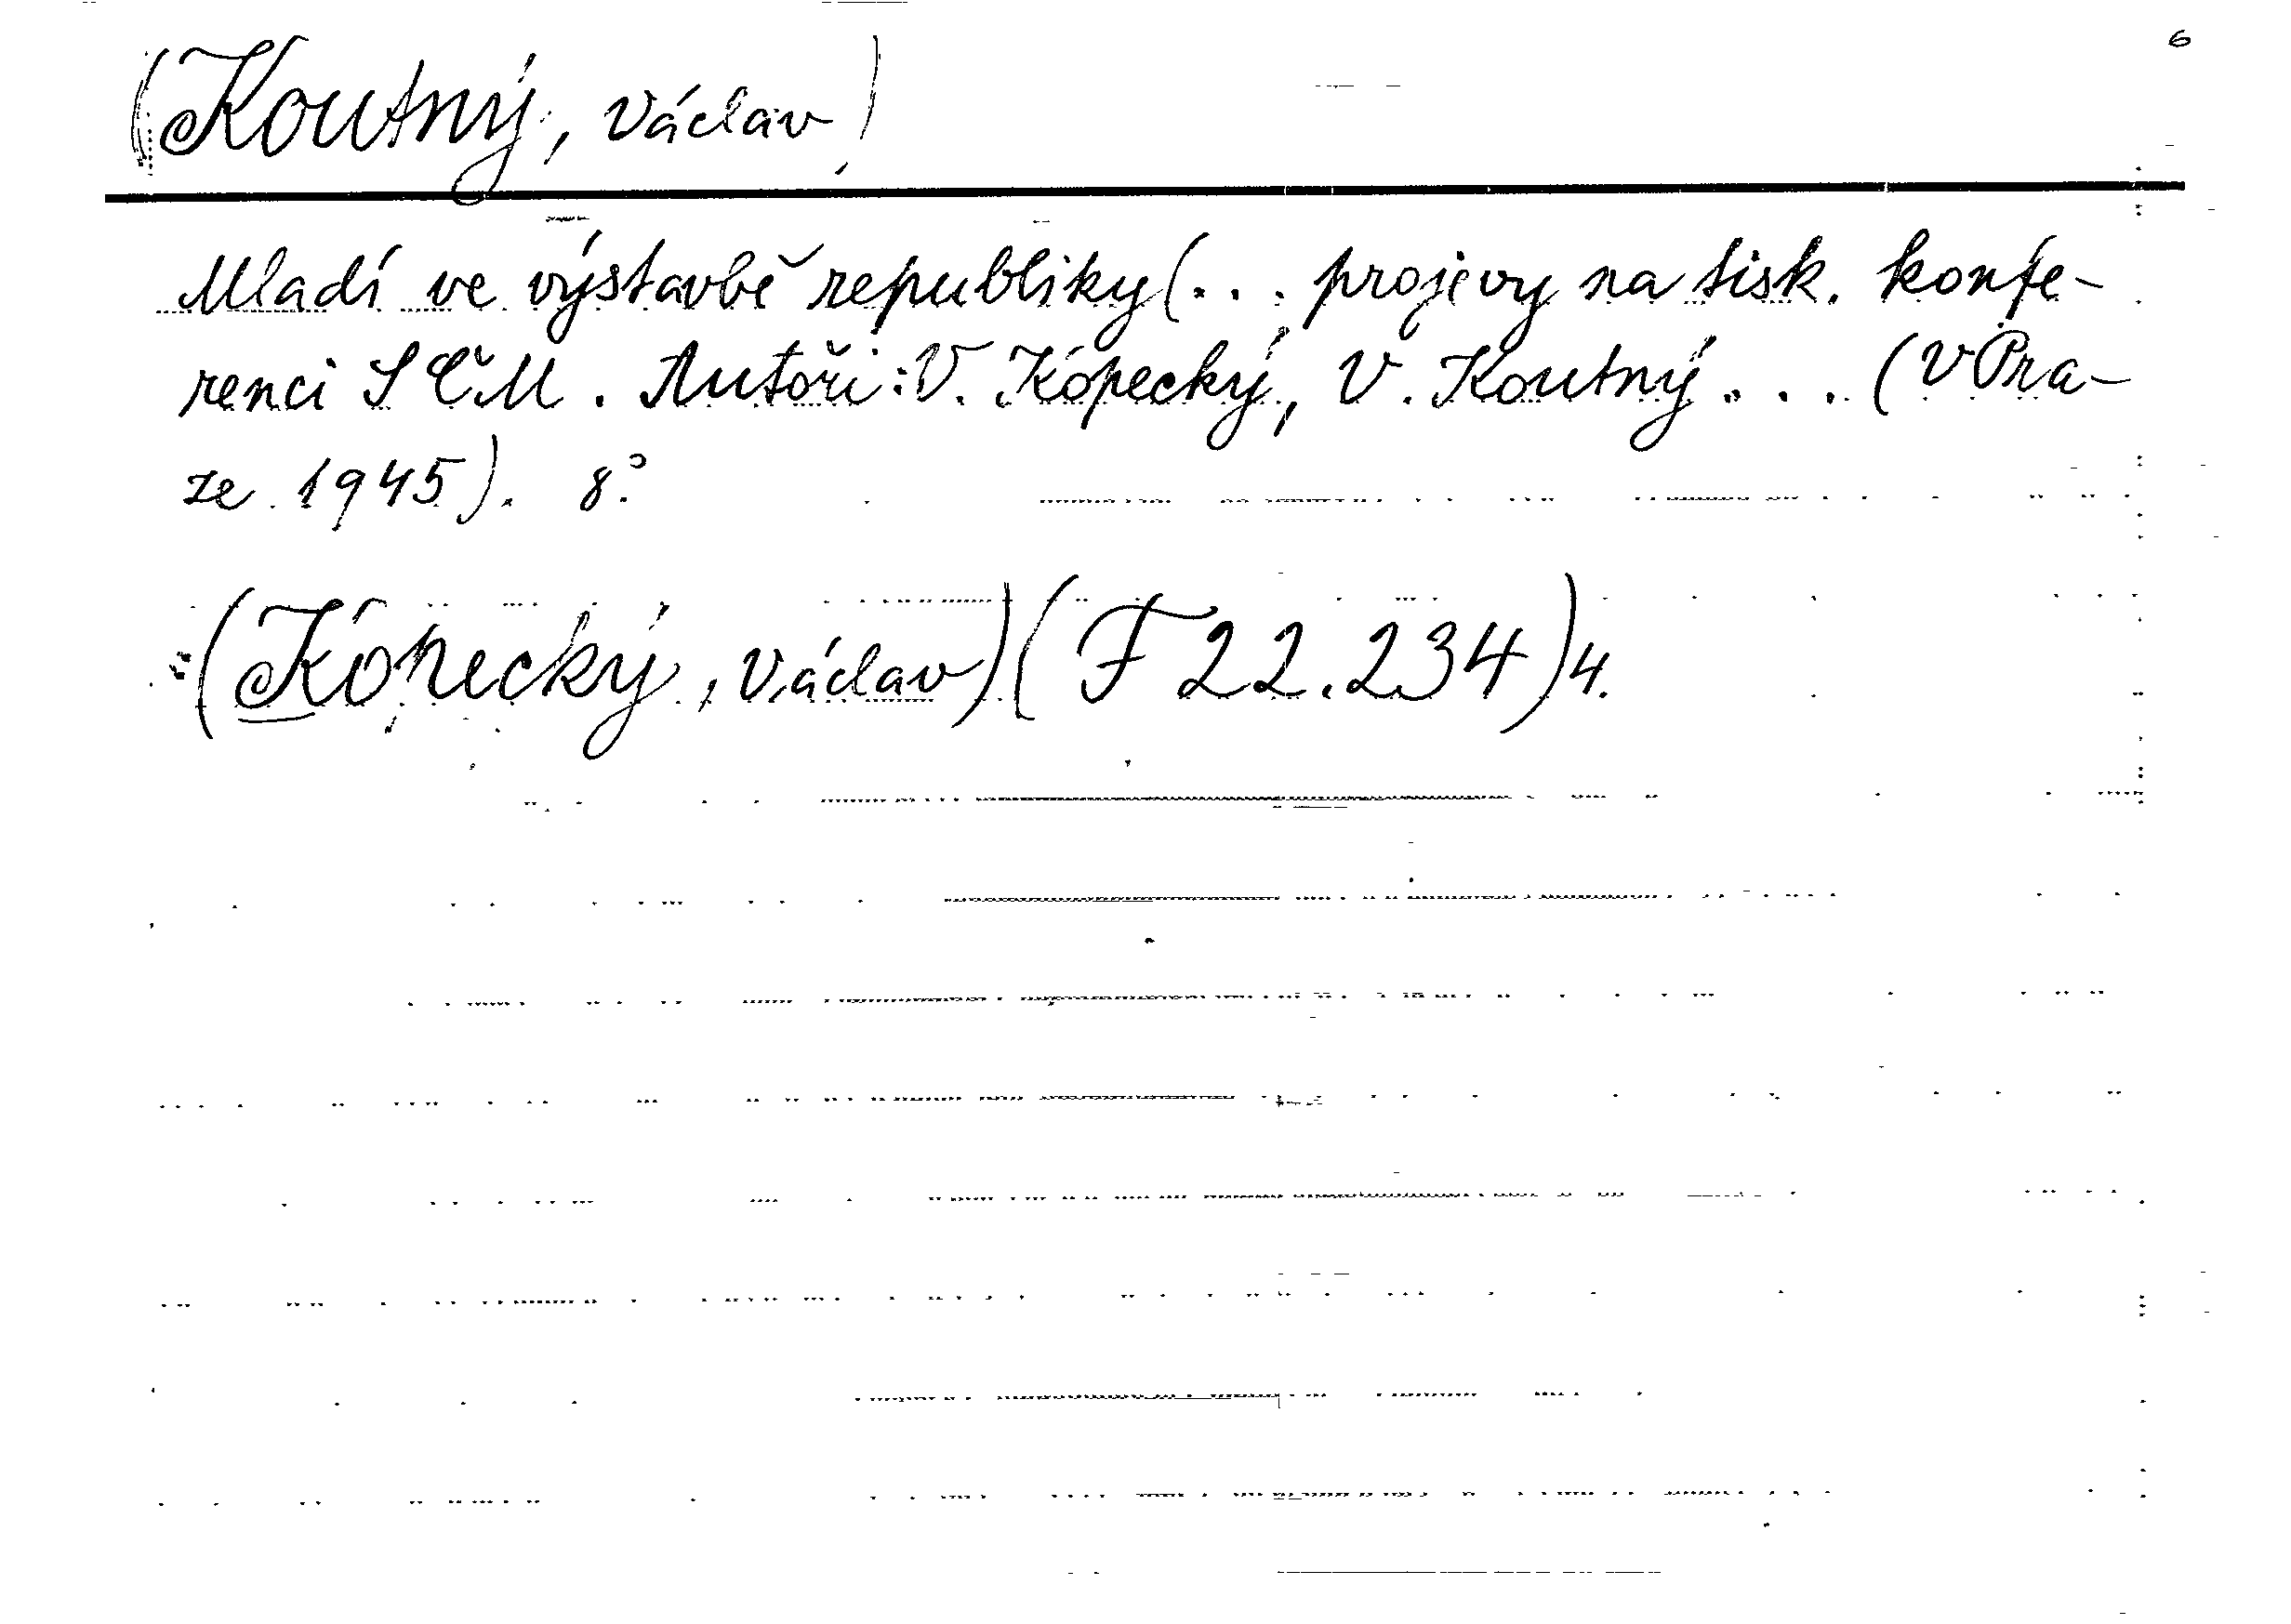 6
(Koutný, Václav)
Mladí ve výstavbě republiky (... projevy na tisk. konfe-
renci SČM. Autoři: V. Kopecký, V. Koutný... (V Pra-
ze 1945). 8°.
(Kopecký, Václav) (F 22.234) 4.